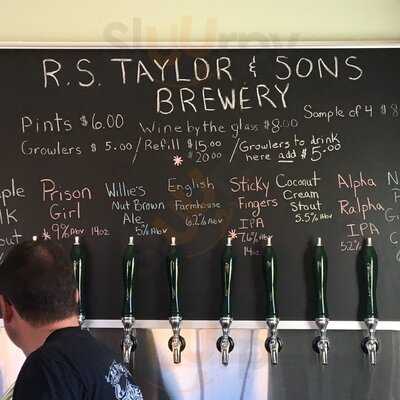 R.S. TAYLOR & SONS
BREWERY
Pints $6.00
Wine by the glass $8.00
Sample of 4 $8
Growlers $5.00/Refill $15.00
* $20.00
/Growlers to drink
here add $5.00
Prison
Girl
*9% ABV 14oz
Willie's
Nut Brown
Ale
5% ABV
English
Farmhouse
6.2% ABV
Sticky
Fingers
* IPA
7.6% ABV
14oz
Coconut
Cream
Stout
5.5% ABV
Alpha
Ralpha
IPA
5.2%